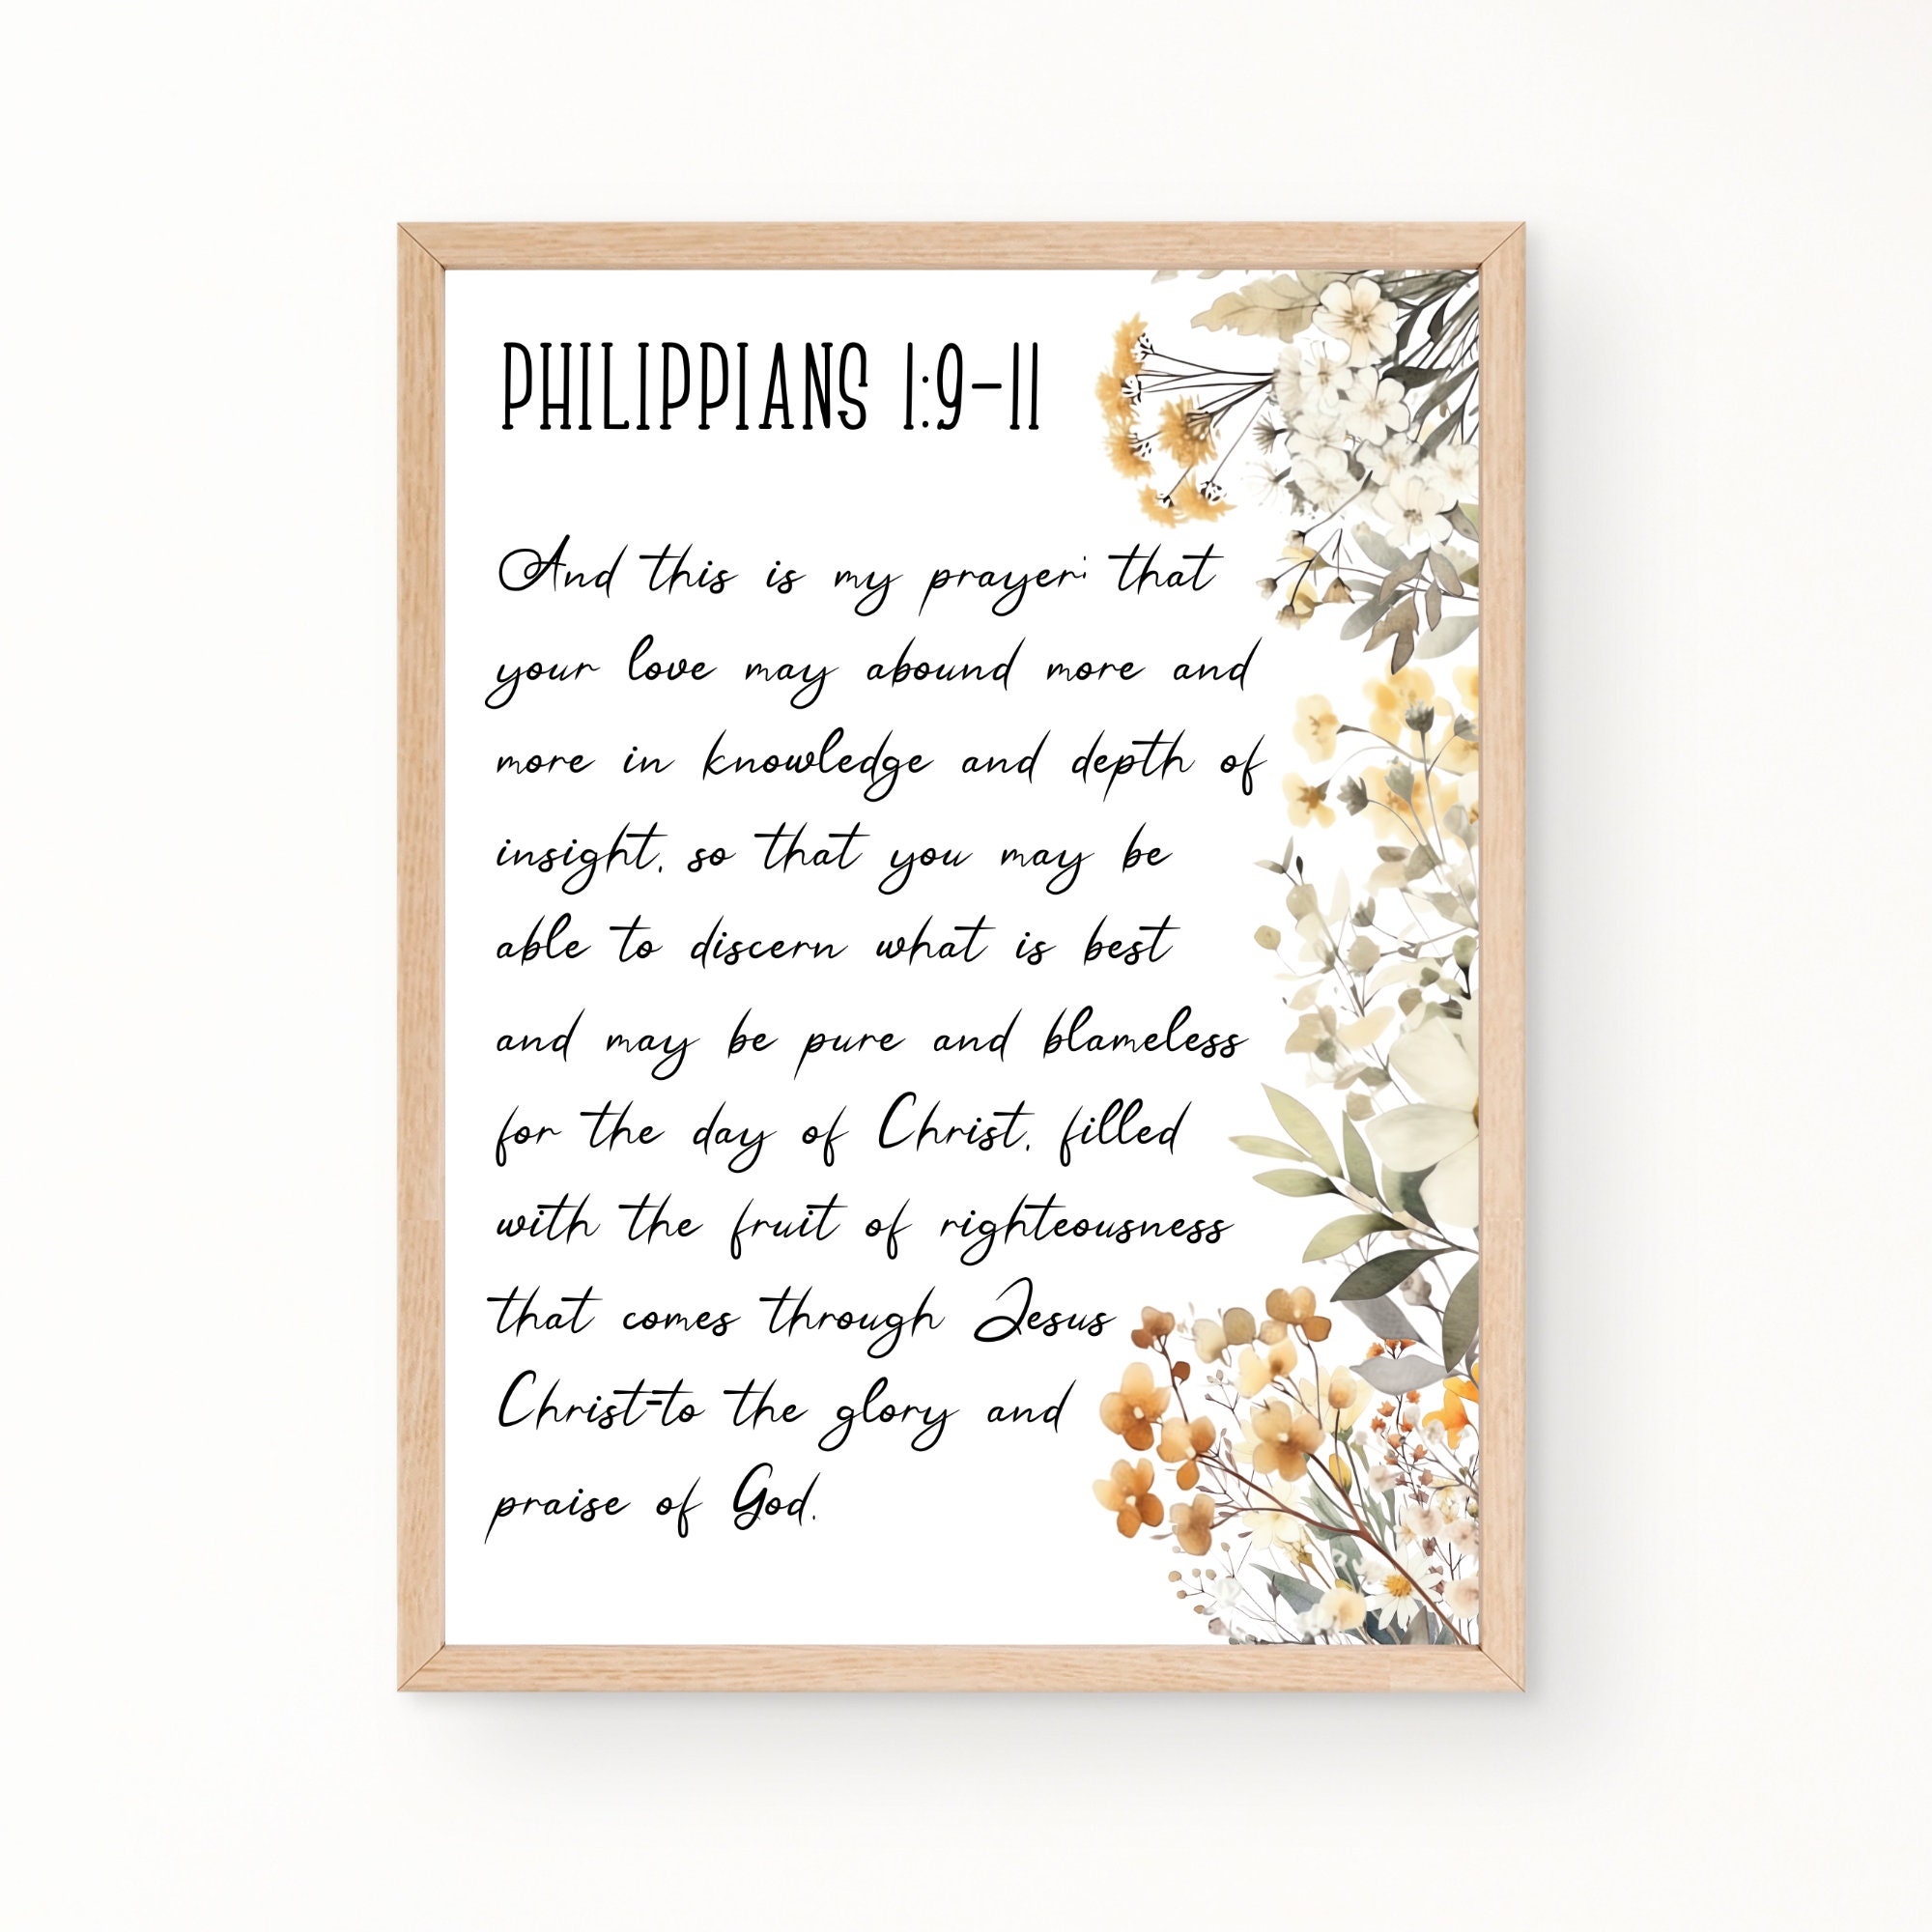 PHILIPPIANS 1:9-11
And this is my prayer: that
your love may abound more and
more in knowledge and depth of
insight, so that you may be
able to discern what is best
and may be pure and blameless
for the day of Christ, filled
with the fruit of righteousness
that comes through Jesus
Christ-to the glory and
praise of God.